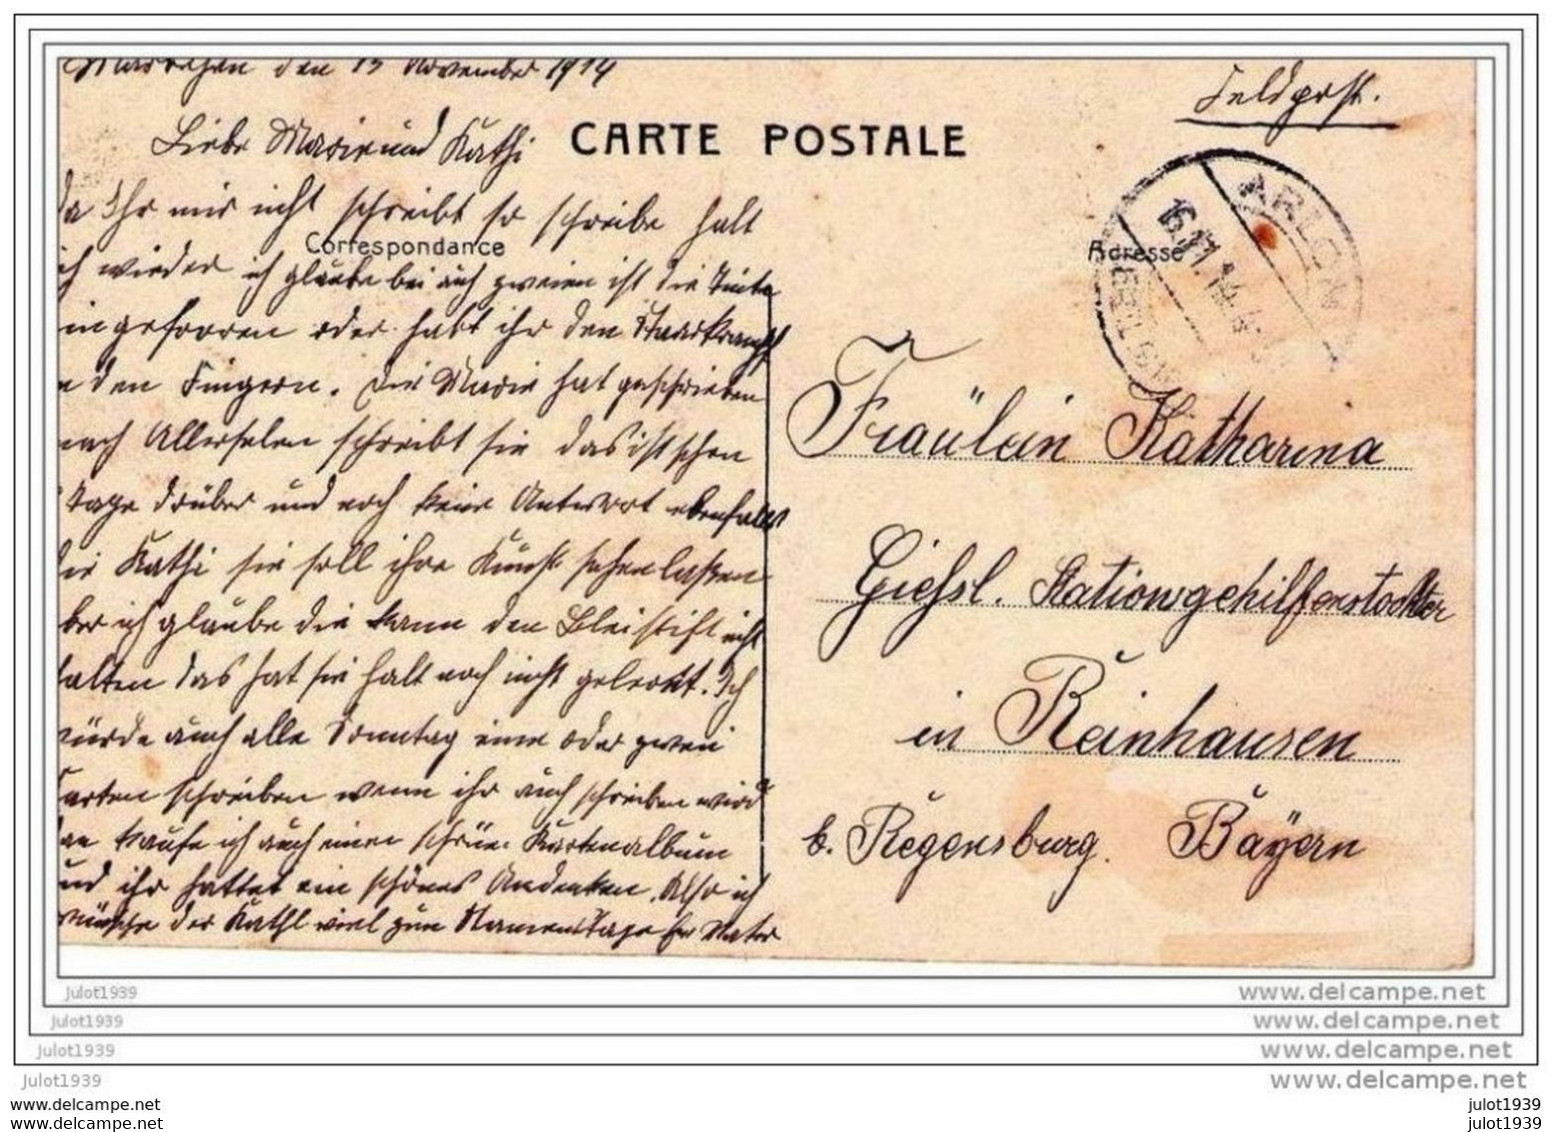 den 15 November 1914
Feldpost.
Liebe Marie und Kathi
CARTE POSTALE
da Ihr mir nicht schreibt so schreibe halt
Correspondance
Adresse
ich wieder ich glaube bei euch zweien ist die Tinte
eingefroren oder habt ihr den Starrkrampf
den Fingern. Die Marie hat geschrieben
nach Allerselen schreibt sie das ist schon
Tage drüber und noch keine Antwort ebenfalls
die Kathi sie soll ihre Kunst sehen laßen
aber ich glaube die kann den Bleistift nicht
halten das hat sie halt noch nicht gelernt. Ich
würde auch alle Sonntag eine oder zwei
Karten schreiben wenn ihr auch schreiben wird
kaufe ich auch einen schöne Kartenalbum
und ihr hattet ein schönes Andenken. Also ich
wünsche der Kathl viel zum Namenstage Vater
ARLON
BELGIEN
16.11.14.
Fräulein Katharina
Giessl. Stationsgehilfenstochter
in Reinhausen
b. Regensburg. Bayern
julot1939
www.delcampe.net
julot1939
www.delcampe.net
julot1939
www.delcampe.net
julot1939
www.delcampe.net
www.delcampe.net
julot1939
www.delcampe.net
julot1939